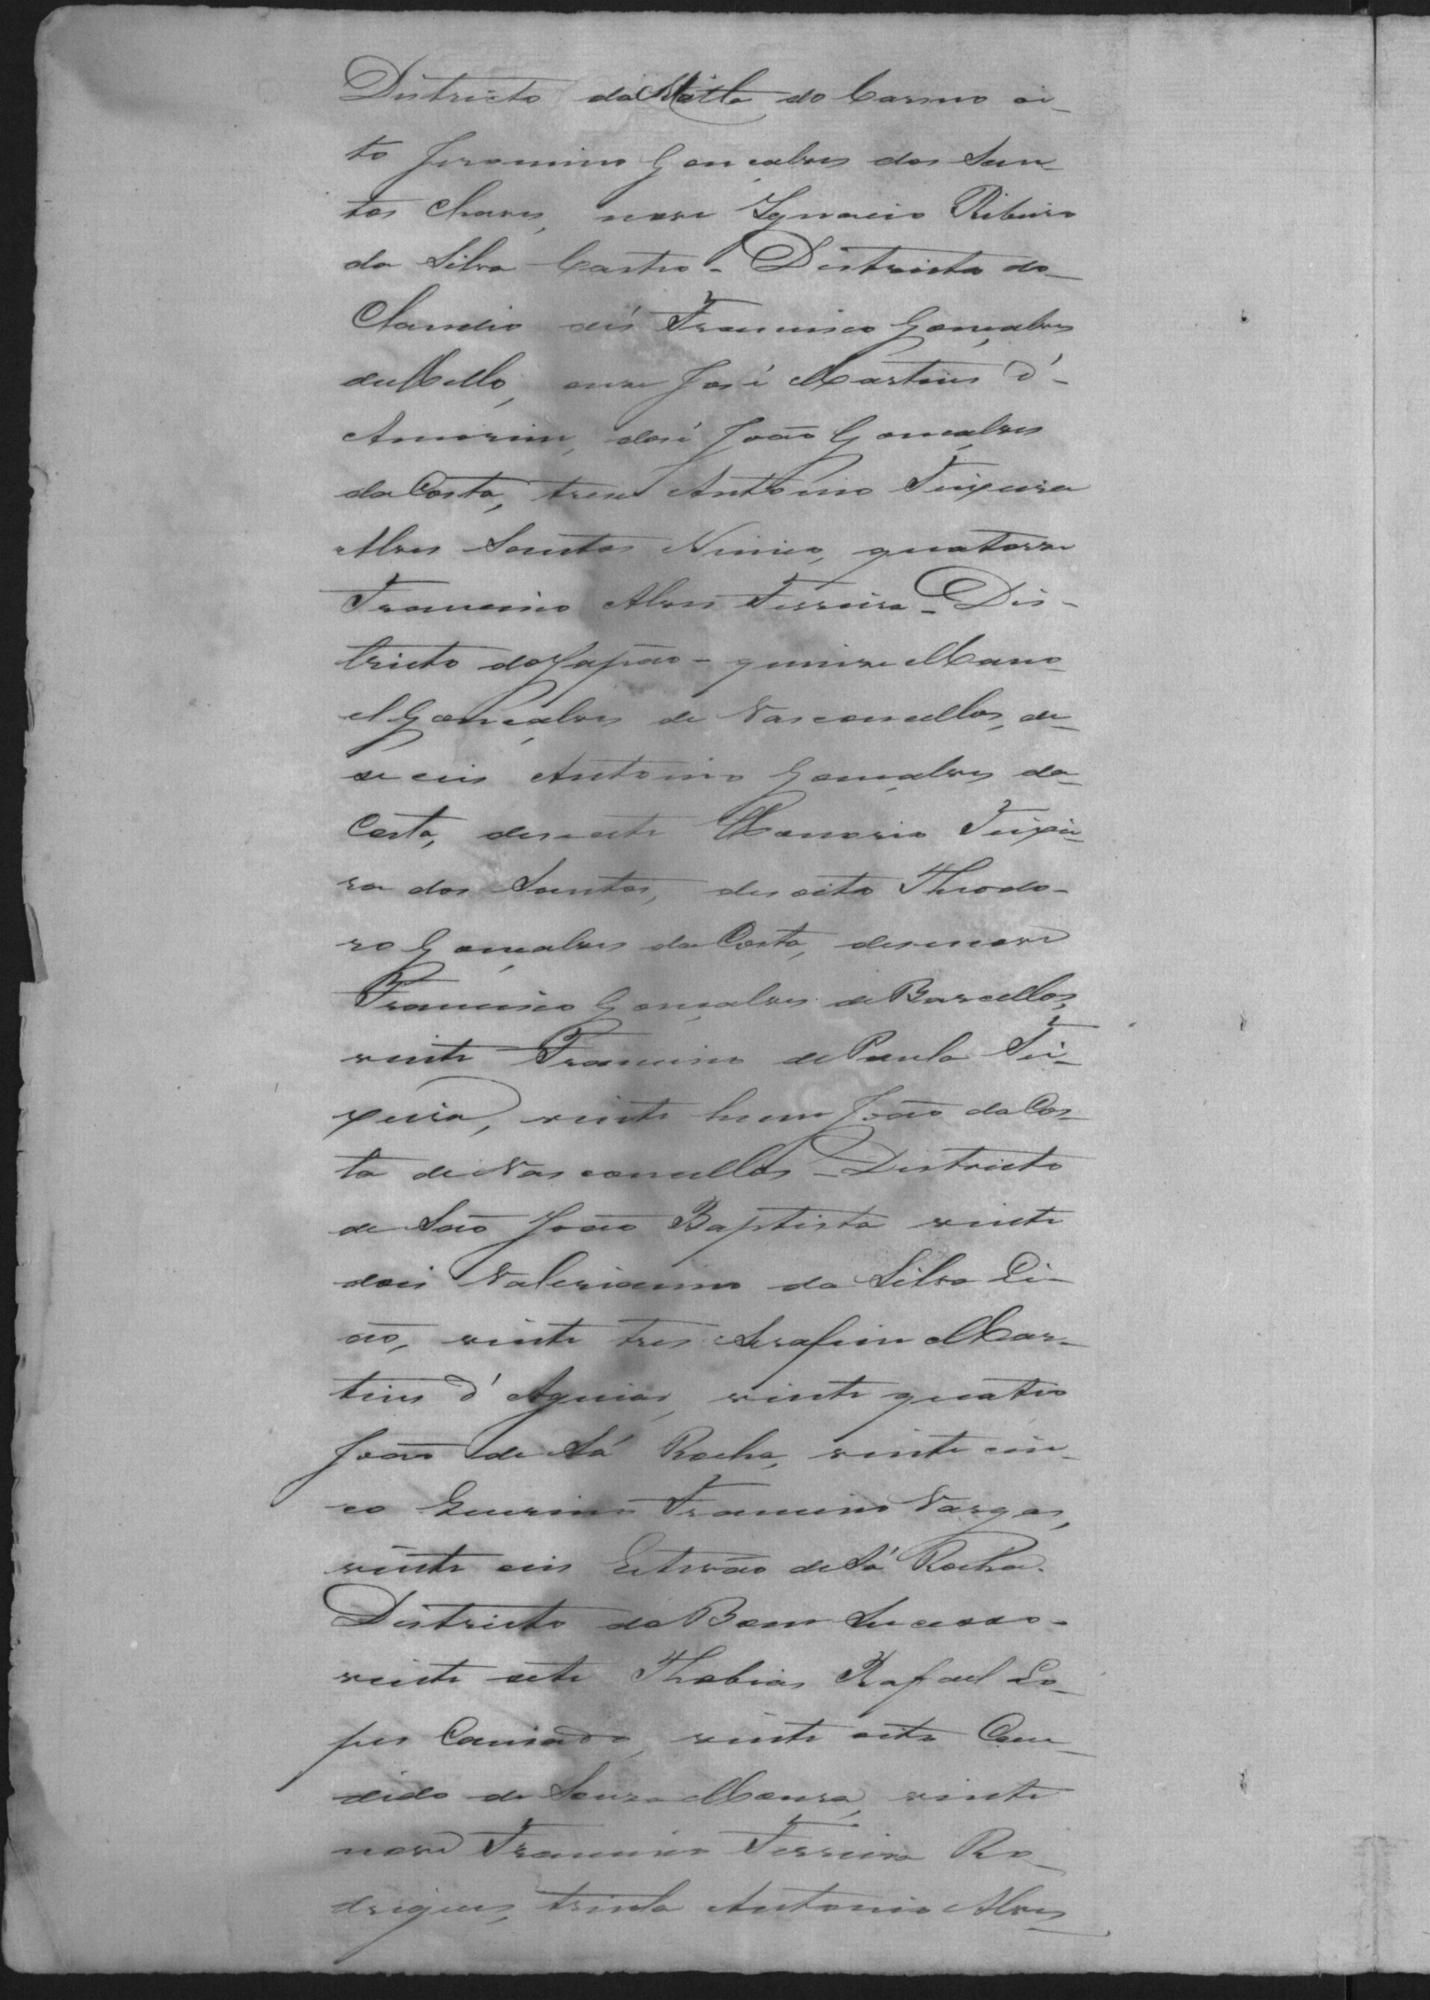 Districto da Matta do Carmo oi-
to Jeronimo Gonçalves dos San-
tos Chaves, nove Ignacio Ribeiro
da Silva Castro - Districto do
Claudio dés Francisco Gonçalves
de Mello, onze José Martins d'
Amorim, dosé João Gonçalves
da Costa, trese Antonio Teixeira
Alves Santos Ninico, quatorse
Francisco Alves Ferreira - Dis-
tricto do Japão - quinse Mano
el Gonçalves de Vasconcellos, de-
seseis Antonio Gonçalves da
Costa, desesete Honorio Teixei-
ra dos Santos, desoito Theodo-
ro Gonçalves da Costa, desenove
Francisco Gonçalves de Barcellos,
vinte Francisco de Paula Tei-
xeira, vinte hum João da Cos-
ta de Vasconcellos - Districto
de São João Baptista vinte
dois Valerianno da Silva Le-
ão, vinte tres Serafim Mar-
tins d'Aguiar, vinte quatro
João de Sá Rocha, vinte cin-
co Francisco Vargas,
vinte seis Estevão de Sá Rocha.
Districto do Bom Sucesso -
vinte sete Thobias Rafael Lo-
pes Cansado, vinte oito Can-
dido de Souza Moura, vinte
nove Francisco Ferreira Ro-
drigues, trinta Antonio Alves